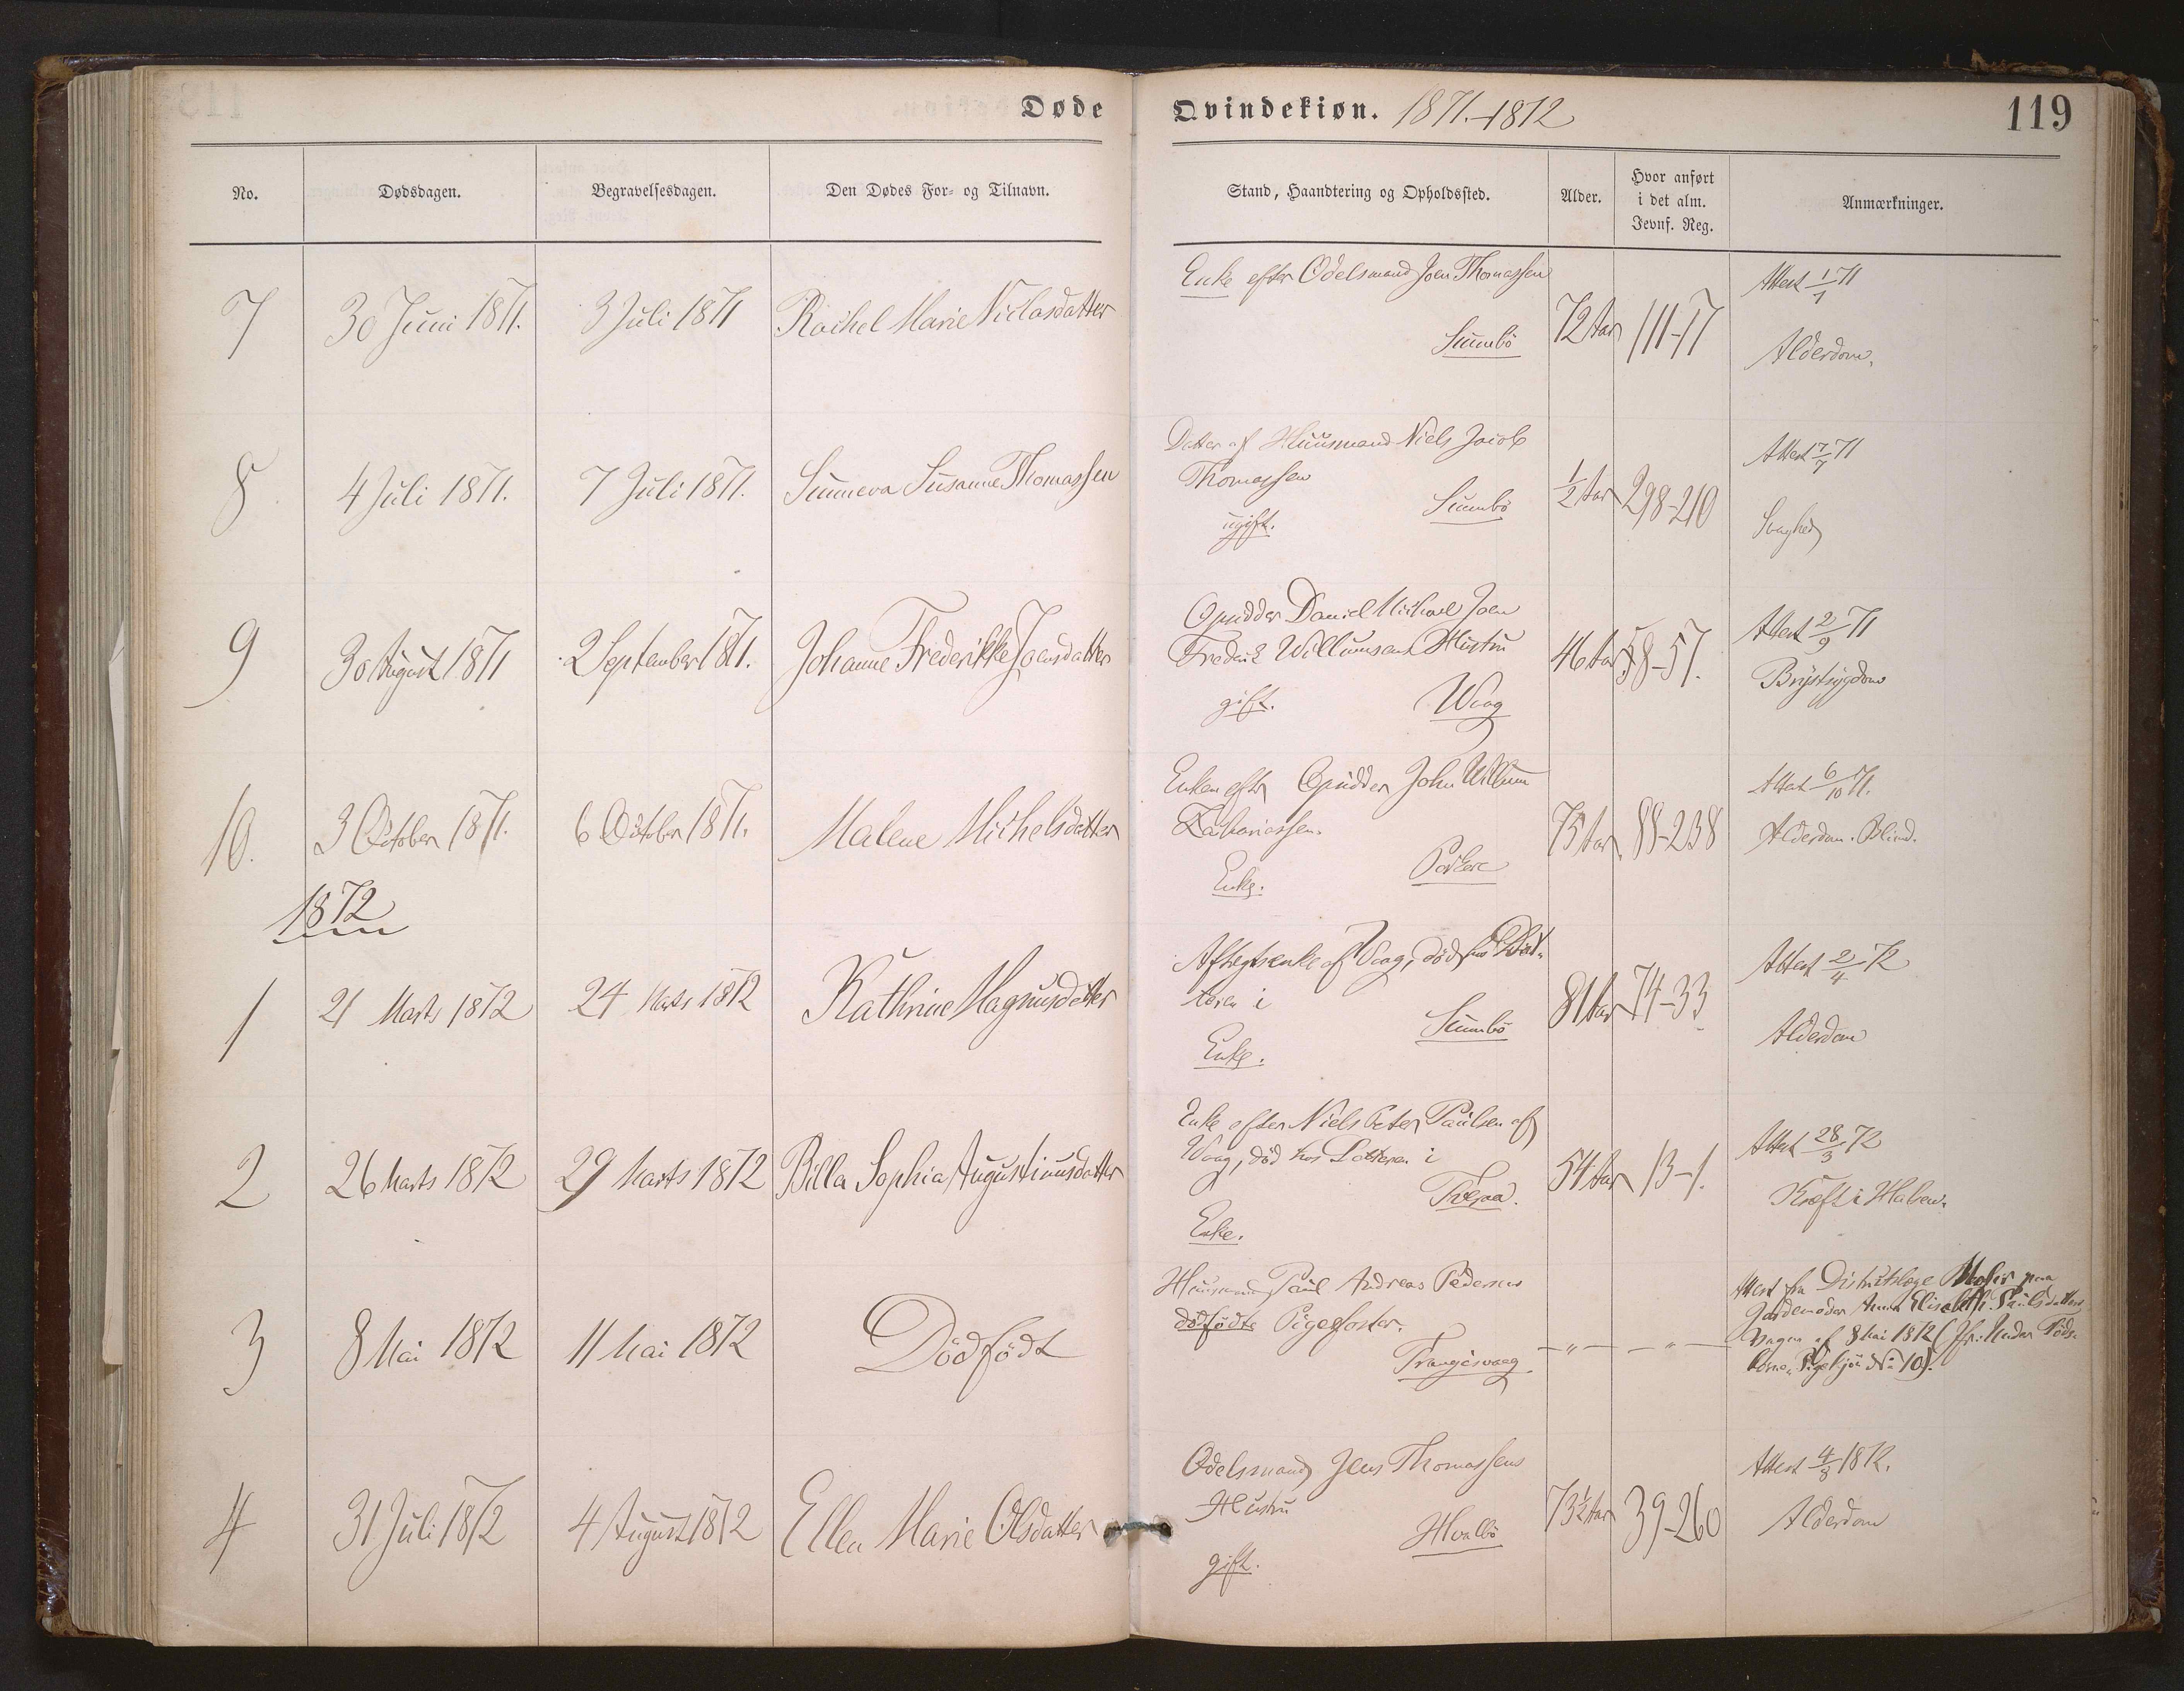 Døde Qvindekiøn. 1871.-1872 119
No. Dødsdagen. Begravelsesdagen. Den Dødes For- og Tilnavn. Stand, Haandtering og Opholdssted. Alder. Hvor anført i det alm. Jevnf. Reg. Anmærkninger.
7 30 Juni 1871. 3 Juli 1871 Rachel Marie Niclasdatter
Enke efter Odelsmand Joen Thomassen
Sumbö
72 Aar 111-17
Attest 1/7 71
Alderdom.
8 4 Juli 1871. 7 Juli 1871. Sunneva Susanne Thomassen
Datter af Huusmand Niels Jacob
Thomassen
Sumbö
ugift.
1/2 Aar 298-210
Attest 7/7 71
Svaghed
9 30 August 1871 2 September 1871. Johanne Frederikke Joensdatter
Opsidder Daniel Michael Joen
Fredrik Willumsens Hustru
gift. Waag
46 Aar 58-57.
Attest 2/9 71
Brystsygdom
10. 3 October 1871. 6 October 1871. Malene Michelsdatter
Enken efter Opsidder John Willum
Zachariassen.
Porkere
Enke.
75 Aar 88-238
Attest 6/10 71.
Alderdom. Blind.
1872
1 21 Marts 1872 24 Marts 1872 Kathrine Magnusdatter
Aftægtsenke af Vaag, död hos Dat-
teren i
Sumbö
Enke.
81 Aar 74-33
Attest 2/4 72
Alderdom
2 26 Marts 1872 29 Marts 1872 Billa Sophia Augustinusdatter
Enke efter Niels Peter Paulsen af
Waag, död hos Dotteren i
Enke.
54 Aar 13-1.
Attest 28/3 72
Kræft i Halsen.
3 8 Mai 1872 11 Mai 1872 Dödfödt
Huusmand Paul Andreas Pedersens
dödfödte Pigefoster.
Trangisvaag
-"- -"-
Attest fra Districtslæge paa
Jordemoder Anna Elisabeth Paulsdatters
af 8 Mai 1872 (Jfr. Under Föds.
Pigekjön No 10).
4 31 Juli 1872 4 August 1872 Ellen Marie Olsdatter
Odelsmand Jens Thomassens
Hustru
Hvalbö
gift.
73 1/2 Aar 39-260
Attest 4/8 1872.
Alderdom